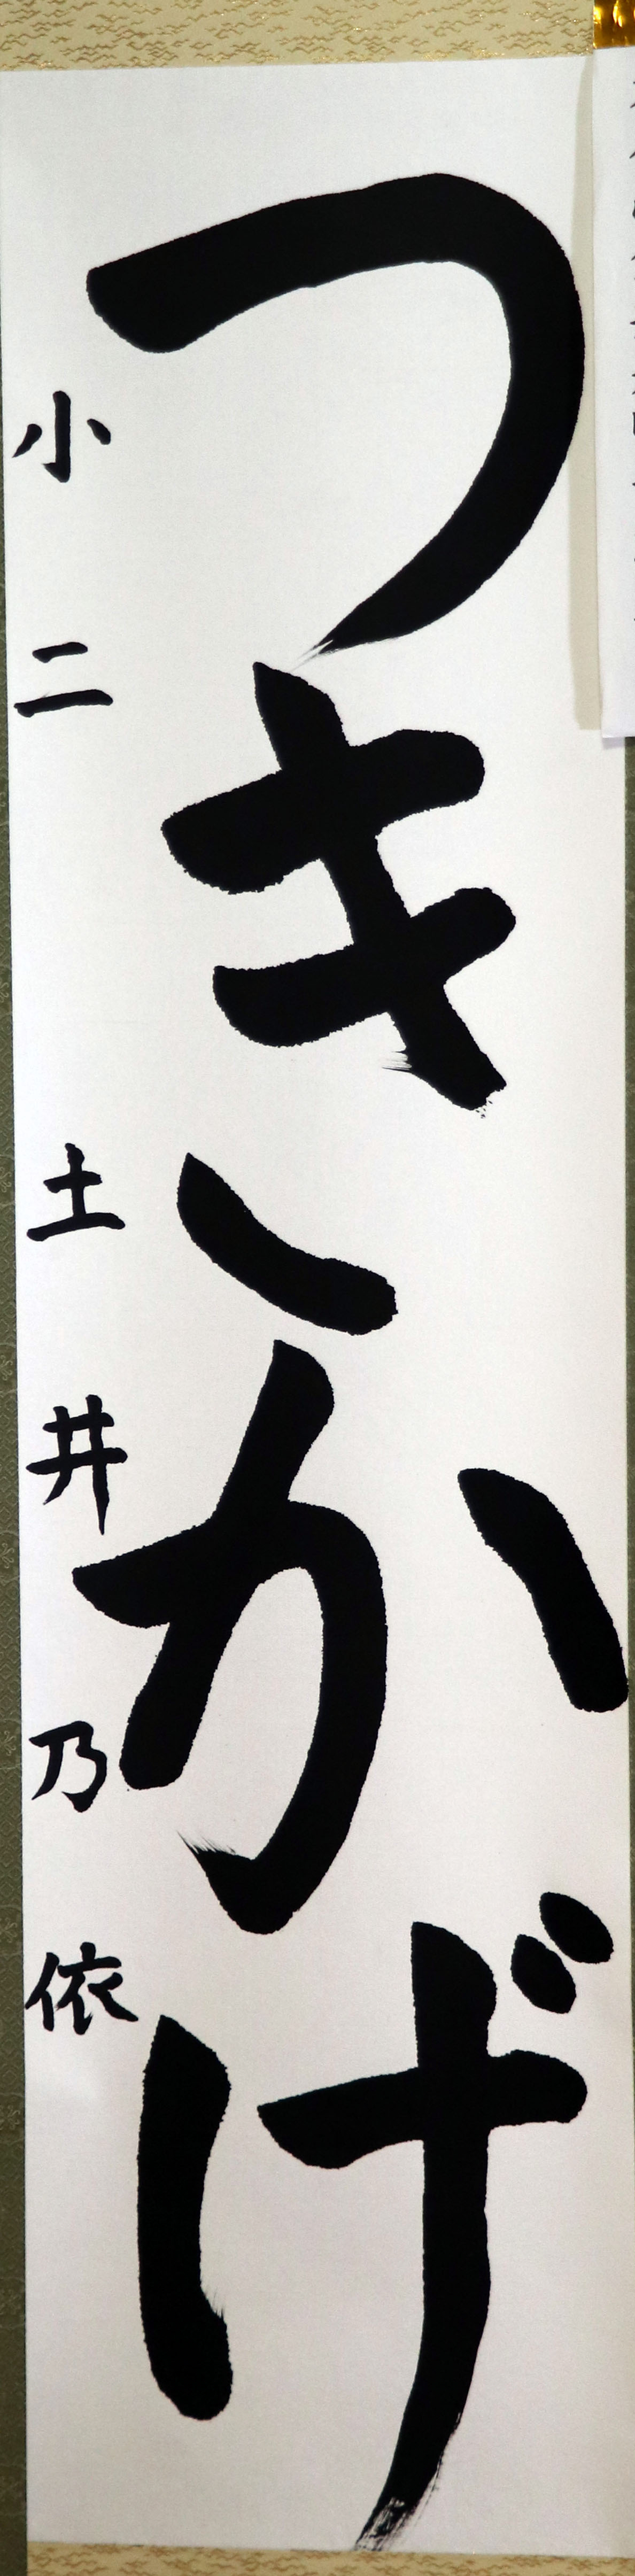 つきかげ
小二 土井乃依